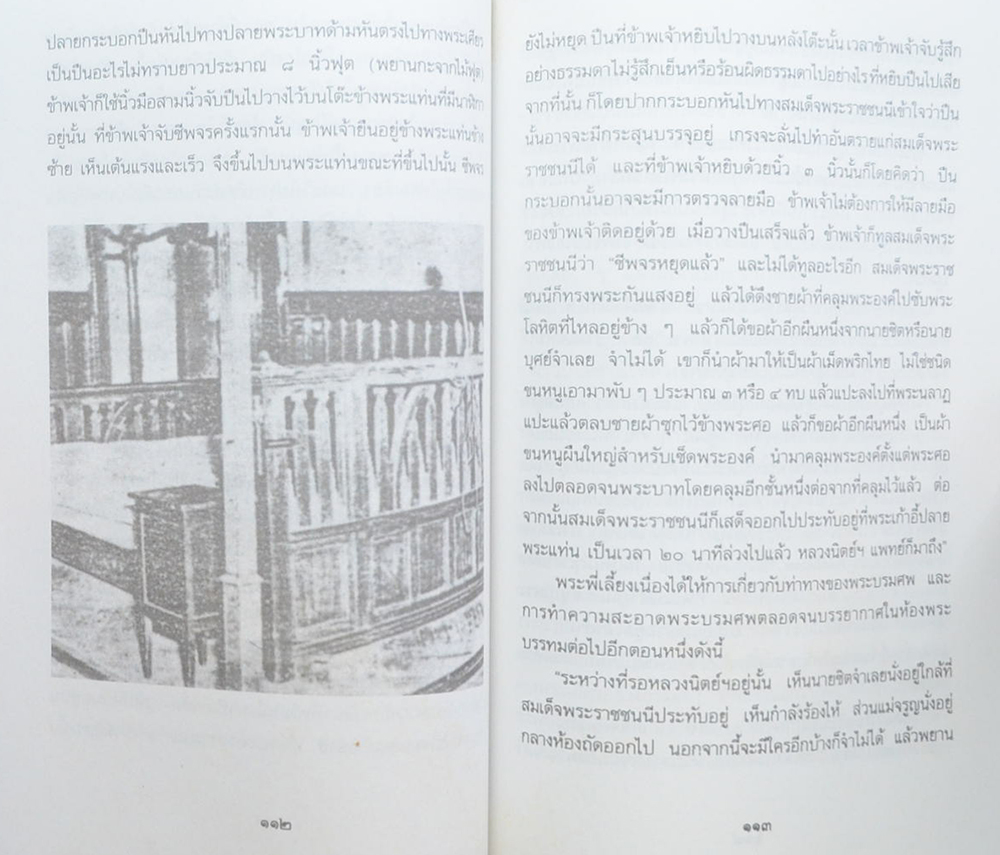 ปลายกระบอกปืนหันไปทางปลายพระบาทด้ามหันตรงไปทางพระเศียร
เป็นปืนอะไรไม่ทราบยาวประมาณ ๘ นิ้วฟุต (พยานกะจากไม้ฟุต)
ข้าพเจ้าก็ใช้นิ้วมือสามนิ้วจับปืนไปวางไว้บนโต๊ะข้างพระแท่นที่มีนาฬิกา
อยู่นั้น ที่ข้าพเจ้าจับชีพจรครั้งแรกนั้น ข้าพเจ้ายืนอยู่ข้างพระแท่นข้าง
ซ้าย เห็นเต้นแรงและเร็ว จึงขึ้นไปบนพระแท่นขณะที่ขึ้นไปนั้น ชีพจร
๑๑๒
ยังไม่หยุด ปืนที่ข้าพเจ้าหยิบไปวางบนหลังโต๊ะนั้น เวลาข้าพเจ้าจับรู้สึก
อย่างธรรมดาไม่รู้สึกเย็นหรือร้อนผิดธรรมดาไปอย่างไร ที่หยิบปืนไปเสีย
จากที่นั้น ก็โดยปากกระบอกหันไปทางสมเด็จพระราชชนนีเข้าใจว่าปืน
นั้นอาจจะมีกระสุนบรรจุอยู่ เกรงจะลั่นไปทำอันตรายแก่สมเด็จพระ
ราชชนนีได้ และที่ข้าพเจ้าหยิบด้วยนิ้ว ๓ นิ้วนั้นก็โดยคิดว่า ปืน
กระบอกนั้นอาจจะมีการตรวจลายมือ ข้าพเจ้าไม่ต้องการให้มีลายมือ
ของข้าพเจ้าติดอยู่ด้วย เมื่อวางปืนเสร็จแล้ว ข้าพเจ้าก็ทูลสมเด็จพระ
ราชชนนีว่า “ชีพจรหยุดแล้ว” และไม่ได้ทูลอะไรอีก สมเด็จพระราช
ชนนีก็ทรงพระกันแสงอยู่ แล้วได้ดึงชายผ้าที่คลุมพระองค์ไปซับพระ
โลหิตที่ไหลอยู่ข้าง ๆ แล้วก็ได้ขอผ้าอีกผืนหนึ่งจากนายชิตหรือนาย
บุศย์จำเลย จำไม่ได้ เขาก็นำผ้ามาให้เป็นผ้าเม็ดพริกไทย ไม่ใช่ชนิด
ขนหนูเอามาพับ ๆ ประมาณ ๓ หรือ ๔ ทบ แล้วแปะลงไปที่พระนลาฏ
แปะแล้วตลบชายผ้าซุกไว้ข้างพระศอ แล้วก็ขอผ้าอีกผืนหนึ่ง เป็นผ้า
ขนหนูผืนใหญ่สำหรับเช็ดพระองค์ นำมาคลุมพระองค์ตั้งแต่พระศอ
ลงไปตลอดจนพระบาทโดยคลุมอีกชั้นหนึ่งต่อจากที่คลุมไว้แล้ว ต่อ
จากนั้นสมเด็จพระราชชนนีก็เสด็จออกไปประทับอยู่ที่พระเก้าอี้ปลาย
พระแท่น เป็นเวลา ๒๐ นาทีล่วงไปแล้ว หลวงนิตย์ฯ แพทย์ก็มาถึง”
พระพี่เลี้ยงเนื่องได้ให้การเกี่ยวกับท่าทางของพระบรมศพ และ
การทำความสะอาดพระบรมศพตลอดจนบรรยากาศในห้องพระ
บรรทมต่อไปอีกตอนหนึ่งดังนี้
“ระหว่างที่รอหลวงนิตย์ฯอยู่นั้น เห็นนายชิตจำเลยนั่งอยู่ใกล้ที่
สมเด็จพระราชชนนีประทับอยู่ เห็นกำลังร้องไห้ ส่วนแม่จรูญนั่งอยู่
กลางห้องถัดออกไป นอกจากนี้จะมีใครอีกบ้างก็จำไม่ได้ แล้วพยาน
๑๑๓